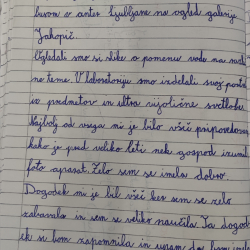 burom v center Ljubljane na ogled galerije
Jakopič.
Ogledali smo si slike o pomenu vode na
na teme. V laboratoriju smo izdelali svoj
iz predmetov in ultra vijolične svetlobe.
Najbolj od vsega mi je bilo všeč pripovedovanje
kako je pred veliko leti nek gospod izumil
foto aparat. Zelo sem se imela dobro.
Dogodek mi je bil všeč ker sem se zelo
zabavala in sem se veliko naučila. Ta dogod
ek si bom zapomnila in upam da bom